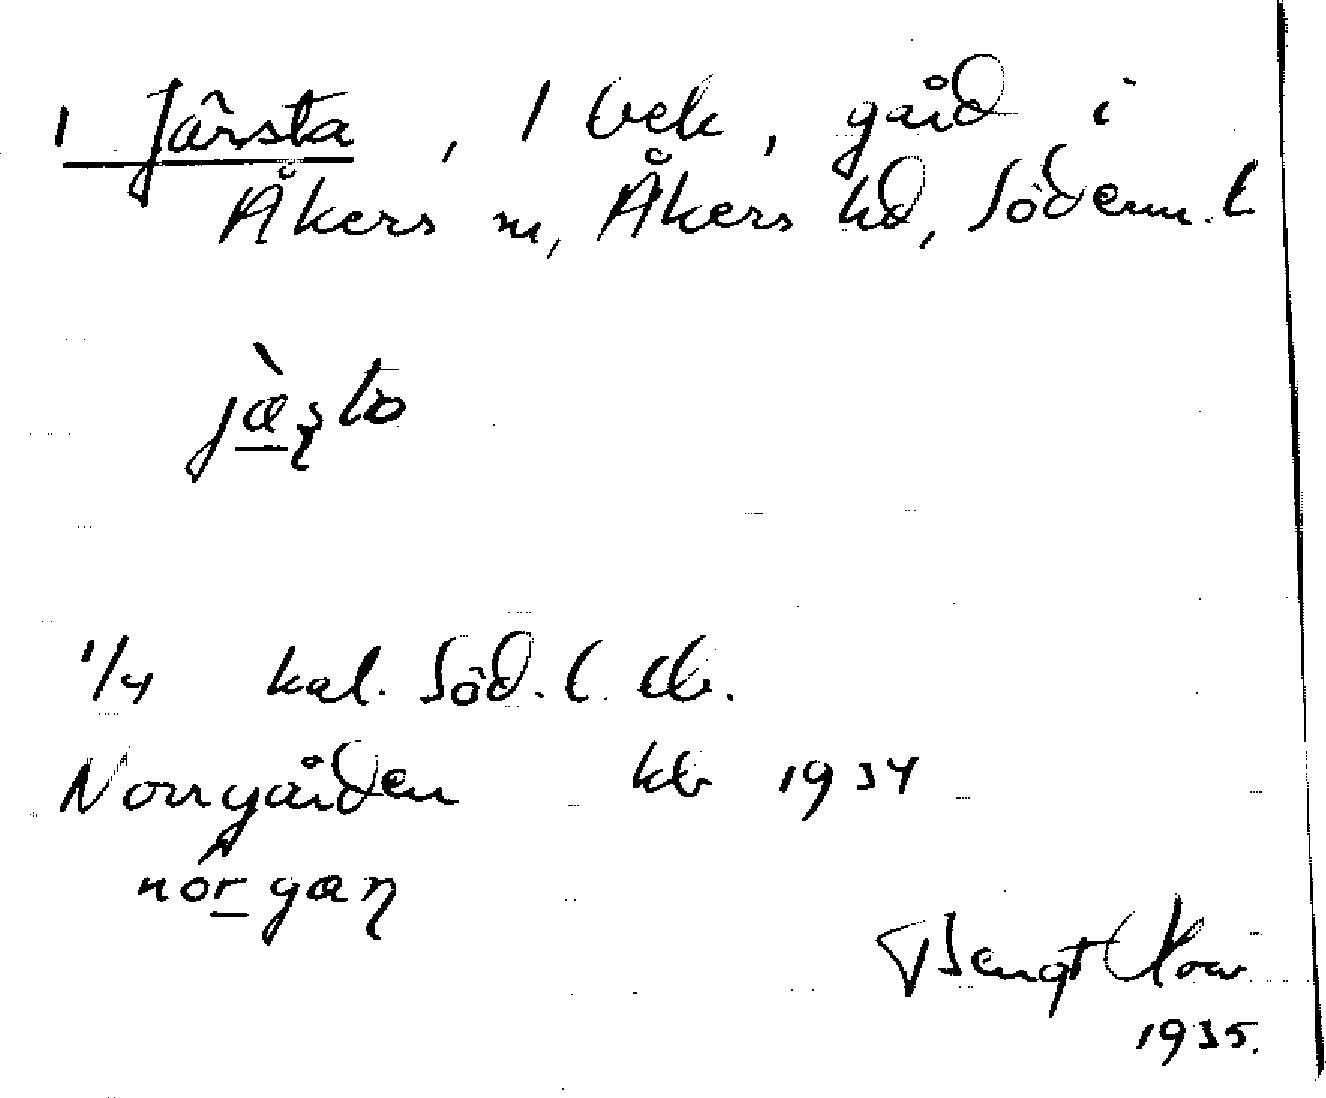 1 Järsta, 1 bek, gård i
Åkers sn, Åkers hd, Söderm. l
jæ̀ʂta
1/4 kal. Söd. l.
Norrgården kb 1934
nórgaɳ
Bengt
1935.